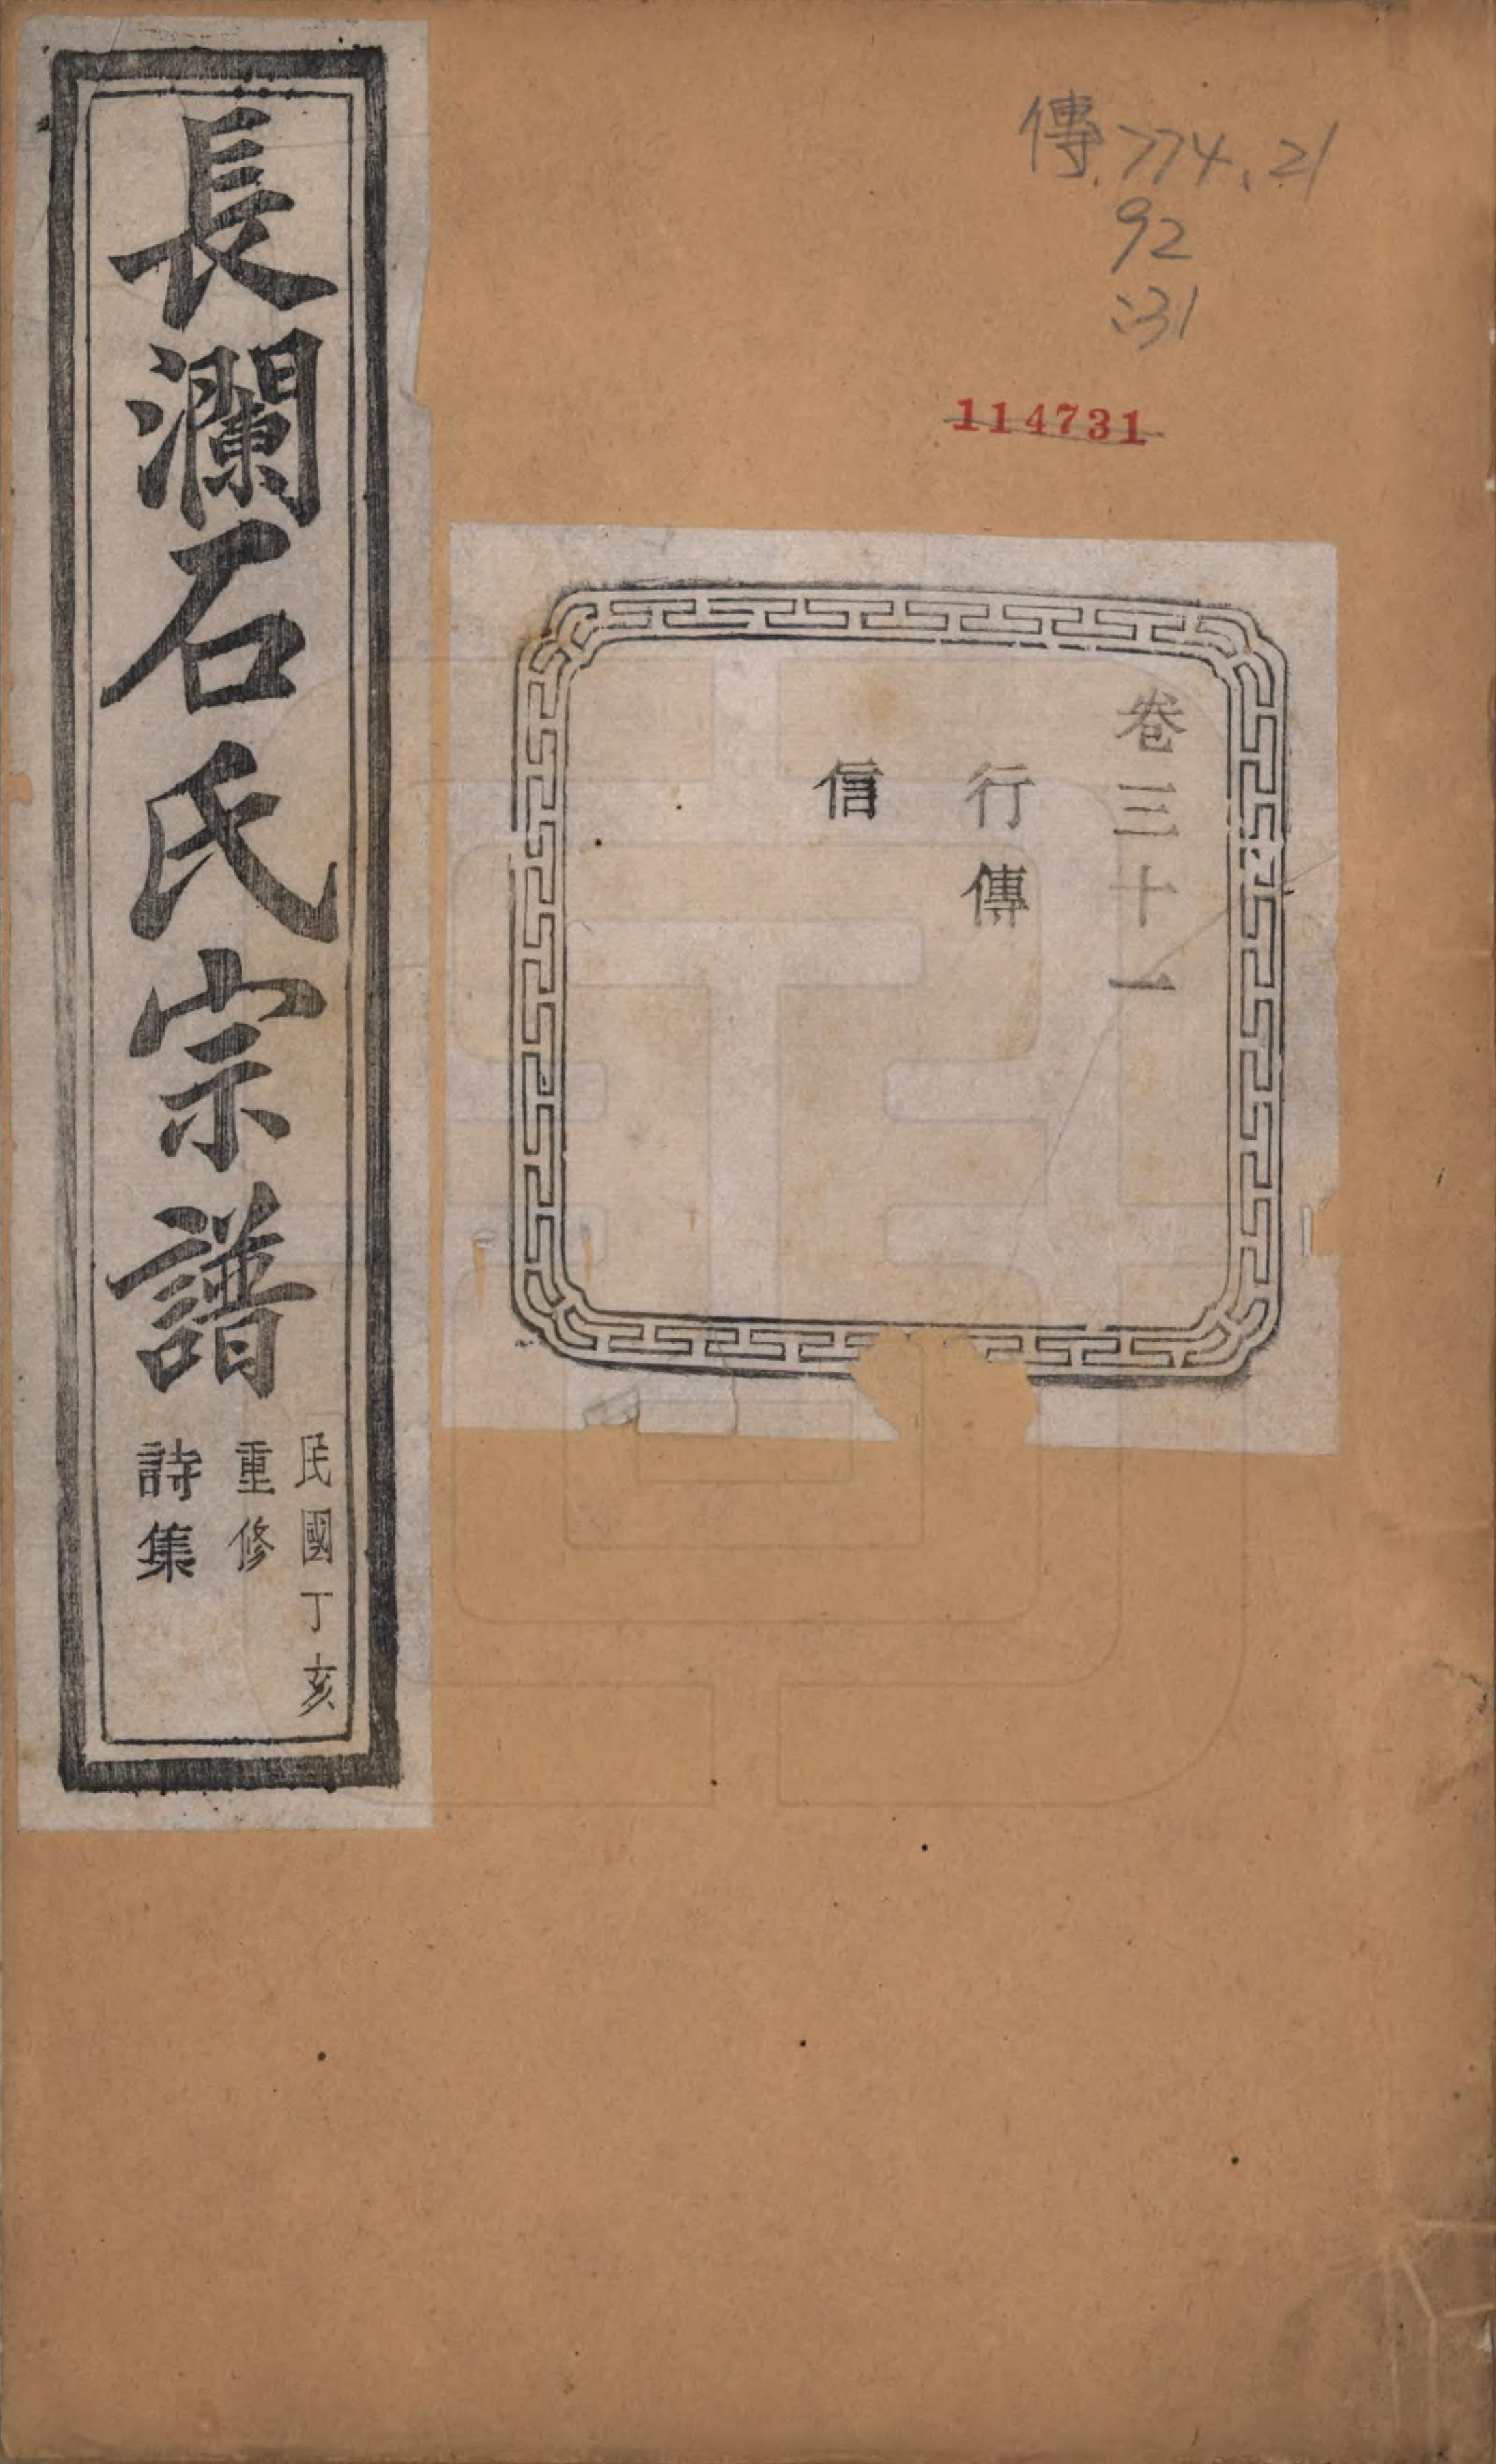 傳 774.21
92
:31
114731
卷三十一
行傳
信
長瀾石氏宗譜
民國丁亥
重修
詩集